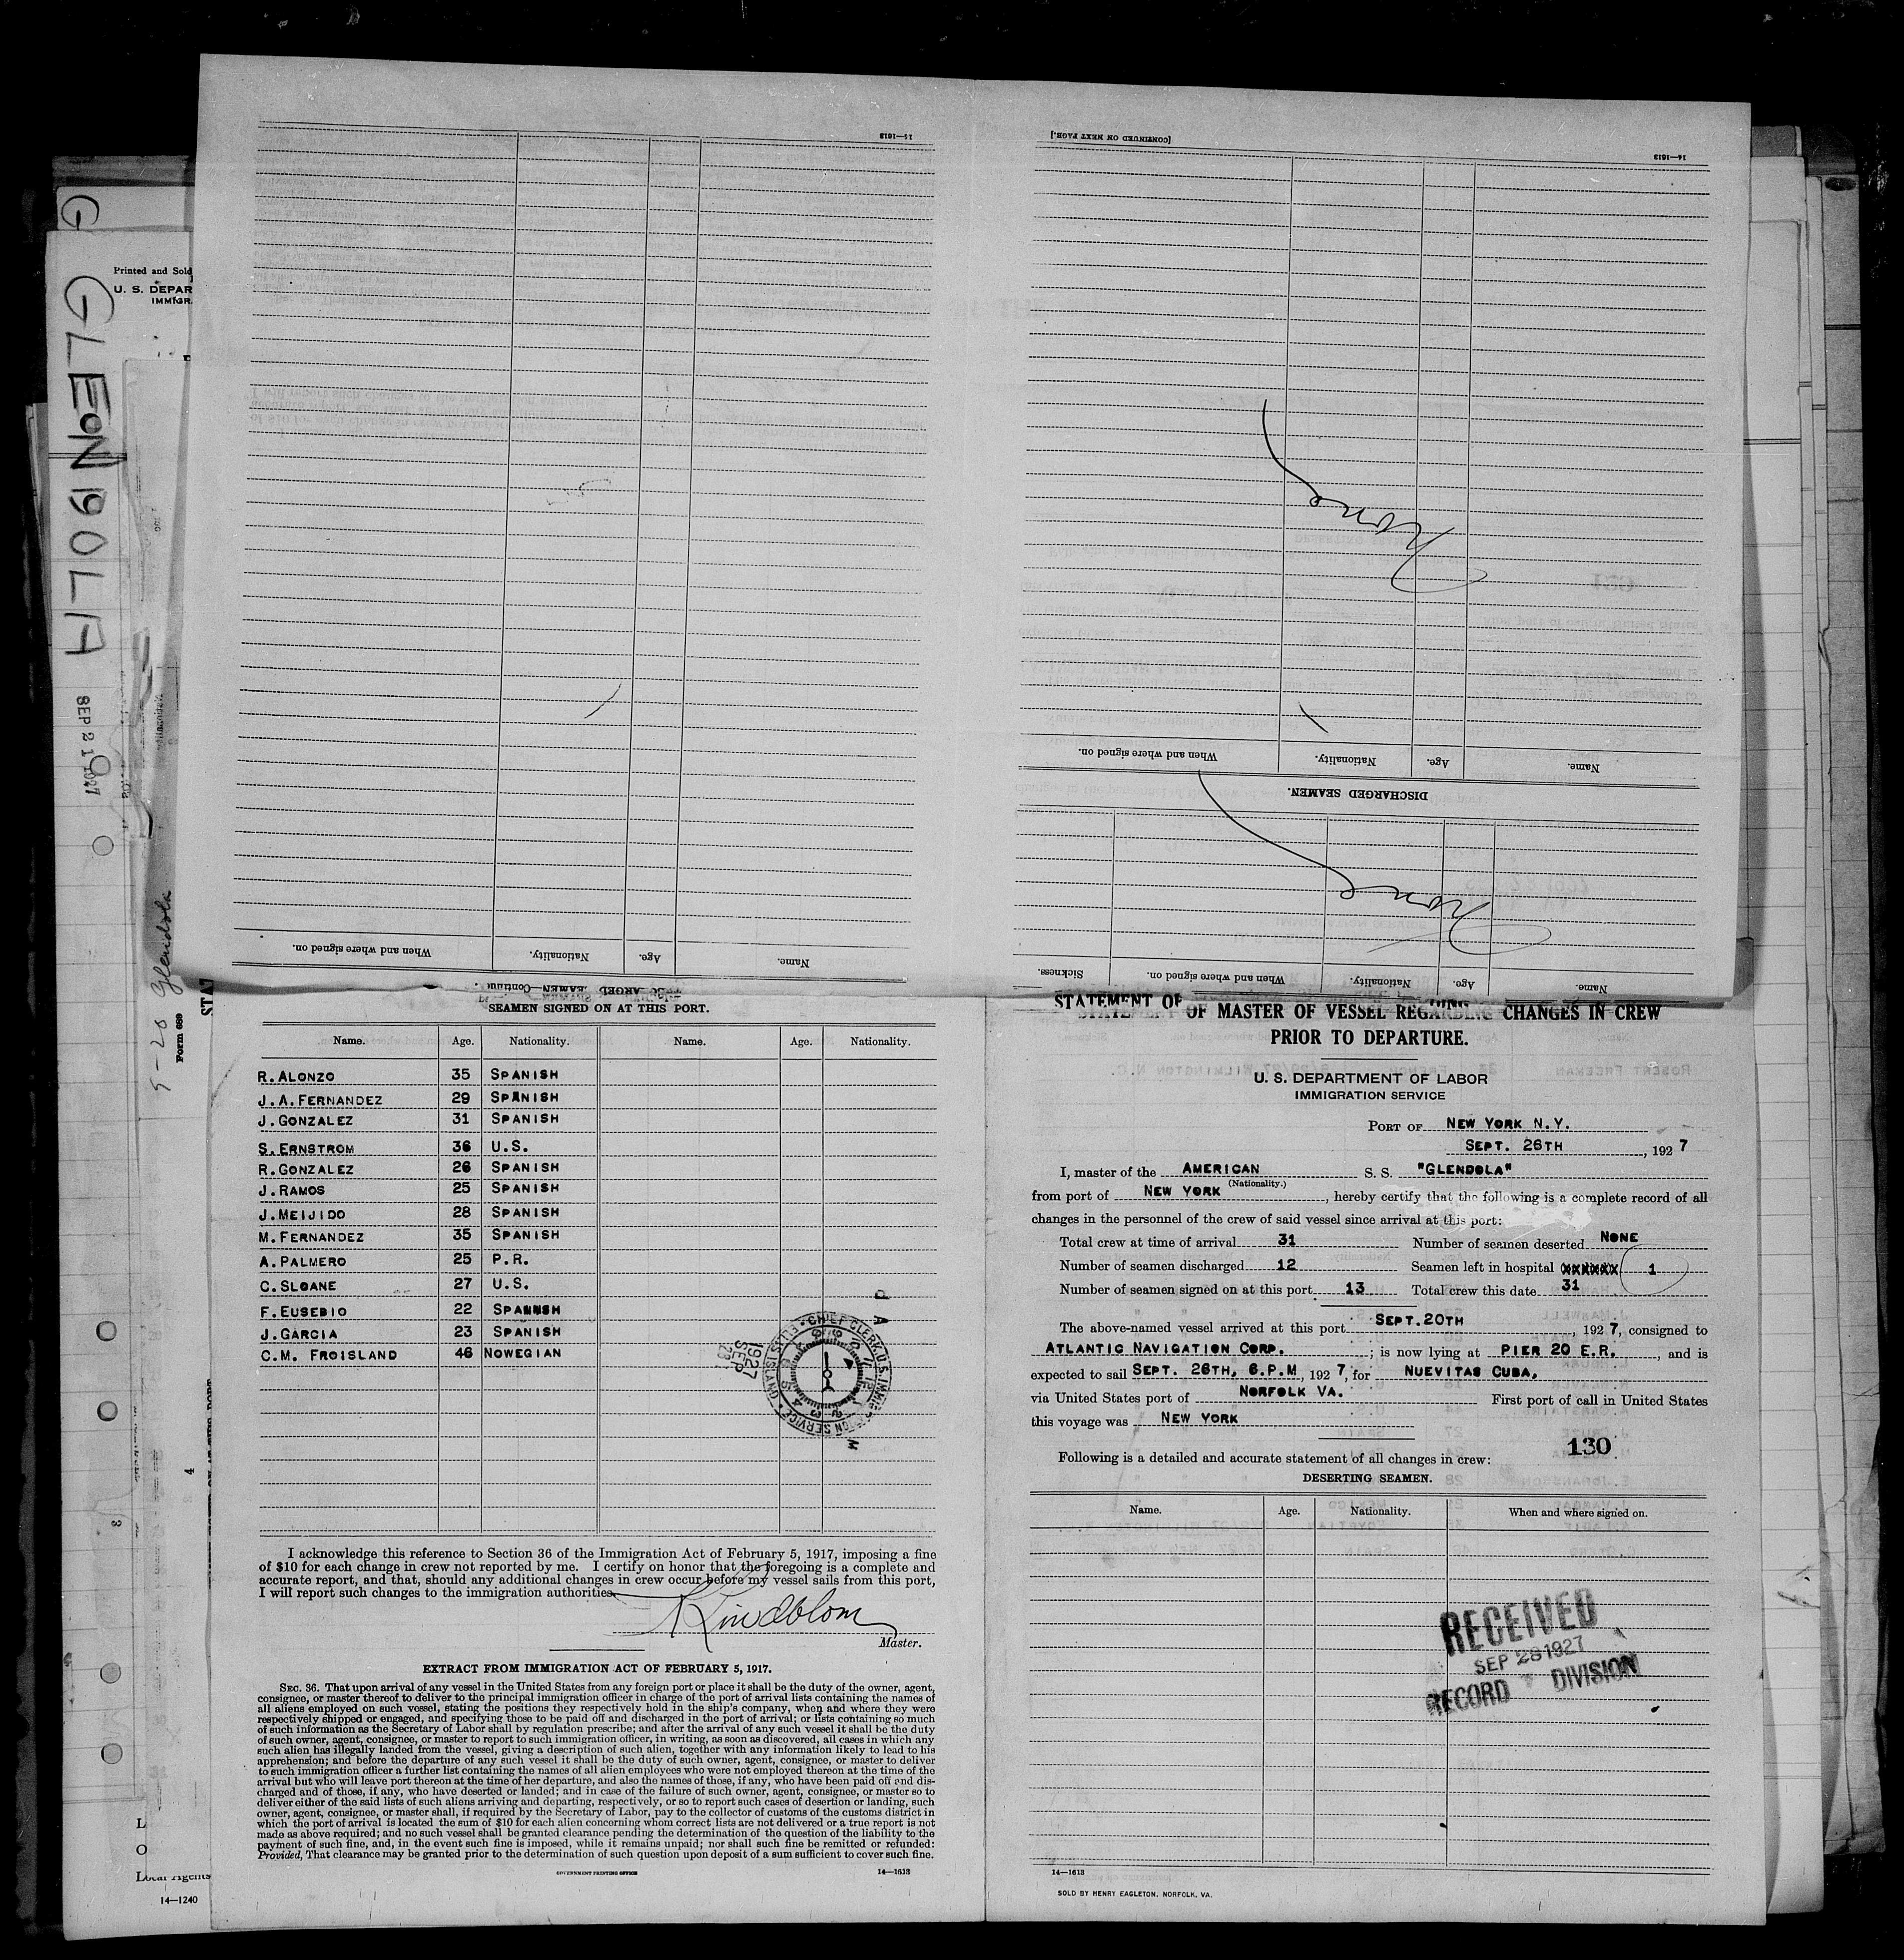 14—1613
[CONTINUED ON NEXT PAGE.]
14—1613
None
When and where signed on.
Nationality.
Age.
Name.
DISCHARGED SEAMEN.
None
When and where signed on.
Nationality.
Age.
Name.
Sickness.
When and where signed on.
Nationality.
Age.
Name.
G
GLENDOLA
SEP 21 1927
Printed and Sold
U. S. DEPAR
IMMIGR
Glendola
Form 689
4
3
L
O
Local Agents
14—1240
SEAMEN SIGNED ON AT THIS PORT.
Name. Age. Nationality. Name. Age. Nationality.
R. ALONZO 35 SPANISH
J. A. FERNANDEZ 29 SPANISH
J. GONZALEZ 31 SPANISH
S. ERNSTROM 36 U.S.
R. GONZALEZ 26 SPANISH
J. RAMOS 25 SPANISH
J. MEIJIDO 28 SPANISH
M. FERNANDEZ 35 SPANISH
A. PALMERO 25 P.R.
C. SLOANE 27 U.S.
F. EUSEBIO 22 SPANNSH
J. GARCIA 23 SPANISH
C.M. FROISLAND 46 NOWEGIAN
CHIEF CLERK, U.S. IMMIGRATION SERVICE • ELLIS ISLAND •
1927
SEP
28
I acknowledge this reference to Section 36 of the Immigration Act of February 5, 1917, imposing a fine
of $10 for each change in crew not reported by me. I certify on honor that the foregoing is a complete and
accurate report, and that, should any additional changes in crew occur before my vessel sails from this port,
I will report such changes to the immigration authorities.
Lindblom
Master.
EXTRACT FROM IMMIGRATION ACT OF FEBRUARY 5, 1917.
SEC. 36. That upon arrival of any vessel in the United States from any foreign port or place it shall be the duty of the owner, agent,
consignee, or master thereof to deliver to the principal immigration officer in charge of the port of arrival lists containing the names of
all aliens employed on such vessel, stating the positions they respectively hold in the ship's company, when and where they were
respectively shipped or engaged, and specifying those to be paid off and discharged in the port of arrival; or lists containing so much
of such information as the Secretary of Labor shall by regulation prescribe; and after the arrival of any such vessel it shall be the duty
of such owner, agent, consignee, or master to report to such immigration officer, in writing, as soon as discovered, all cases in which any
such alien has illegally landed from the vessel, giving a description of such alien, together with any information likely to lead to his
apprehension; and before the departure of any such vessel it shall be the duty of such owner, agent, consignee, or master to deliver
to such immigration officer a further list containing the names of all alien employees who were not employed thereon at the time of the
arrival but who will leave port thereon at the time of her departure, and also the names of those, if any, who have been paid off and dis-
charged and of those, if any, who have deserted or landed; and in case of the failure of such owner, agent, consignee, or master so to
deliver either of the said lists of such aliens arriving and departing, respectively, or so to report such cases of desertion or landing, such
owner, agent, consignee, or master shall, if required by the Secretary of Labor, pay to the collector of customs of the customs district in
which the port of arrival is located the sum of $10 for each alien concerning whom correct lists are not delivered or a true report is not
made as above required; and no such vessel shall be granted clearance pending the determination of the question of the liability to the
payment of such fine, and, in the event such fine is imposed, while it remains unpaid; nor shall such fine be remitted or refunded:
Provided, That clearance may be granted prior to the determination of such question upon deposit of a sum sufficient to cover such fine.
GOVERNMENT PRINTING OFFICE
14—1613
STATEMENT OF MASTER OF VESSEL REGARDING CHANGES IN CREW
PRIOR TO DEPARTURE.
U. S. DEPARTMENT OF LABOR
IMMIGRATION SERVICE
PORT OF NEW YORK N.Y.
SEPT. 26TH, 1927
I, master of the AMERICAN S. S. "GLENDOLA"
(Nationality.)
from port of NEW YORK, hereby certify that the following is a complete record of all
changes in the personnel of the crew of said vessel since arrival at this port:
Total crew at time of arrival 31 Number of seamen deserted NONE
Number of seamen discharged 12 Seamen left in hospital XXXXXX 1
Number of seamen signed on at this port 13 Total crew this date 31
The above-named vessel arrived at this port SEPT.20TH, 1927, consigned to
ATLANTIC NAVIGATION CORP.; is now lying at PIER 20 E.R., and is
expected to sail SEPT. 26TH, 6.P.M, 1927, for NUEVITAS CUBA,
via United States port of NORFOLK VA. First port of call in United States
this voyage was NEW YORK
130
Following is a detailed and accurate statement of all changes in crew:
DESERTING SEAMEN.
Name. Age. Nationality. When and where signed on.
RECEIVED
SEP 28 1927
RECORD DIVISION
14—1613
SOLD BY HENRY EAGLETON, NORFOLK, VA.